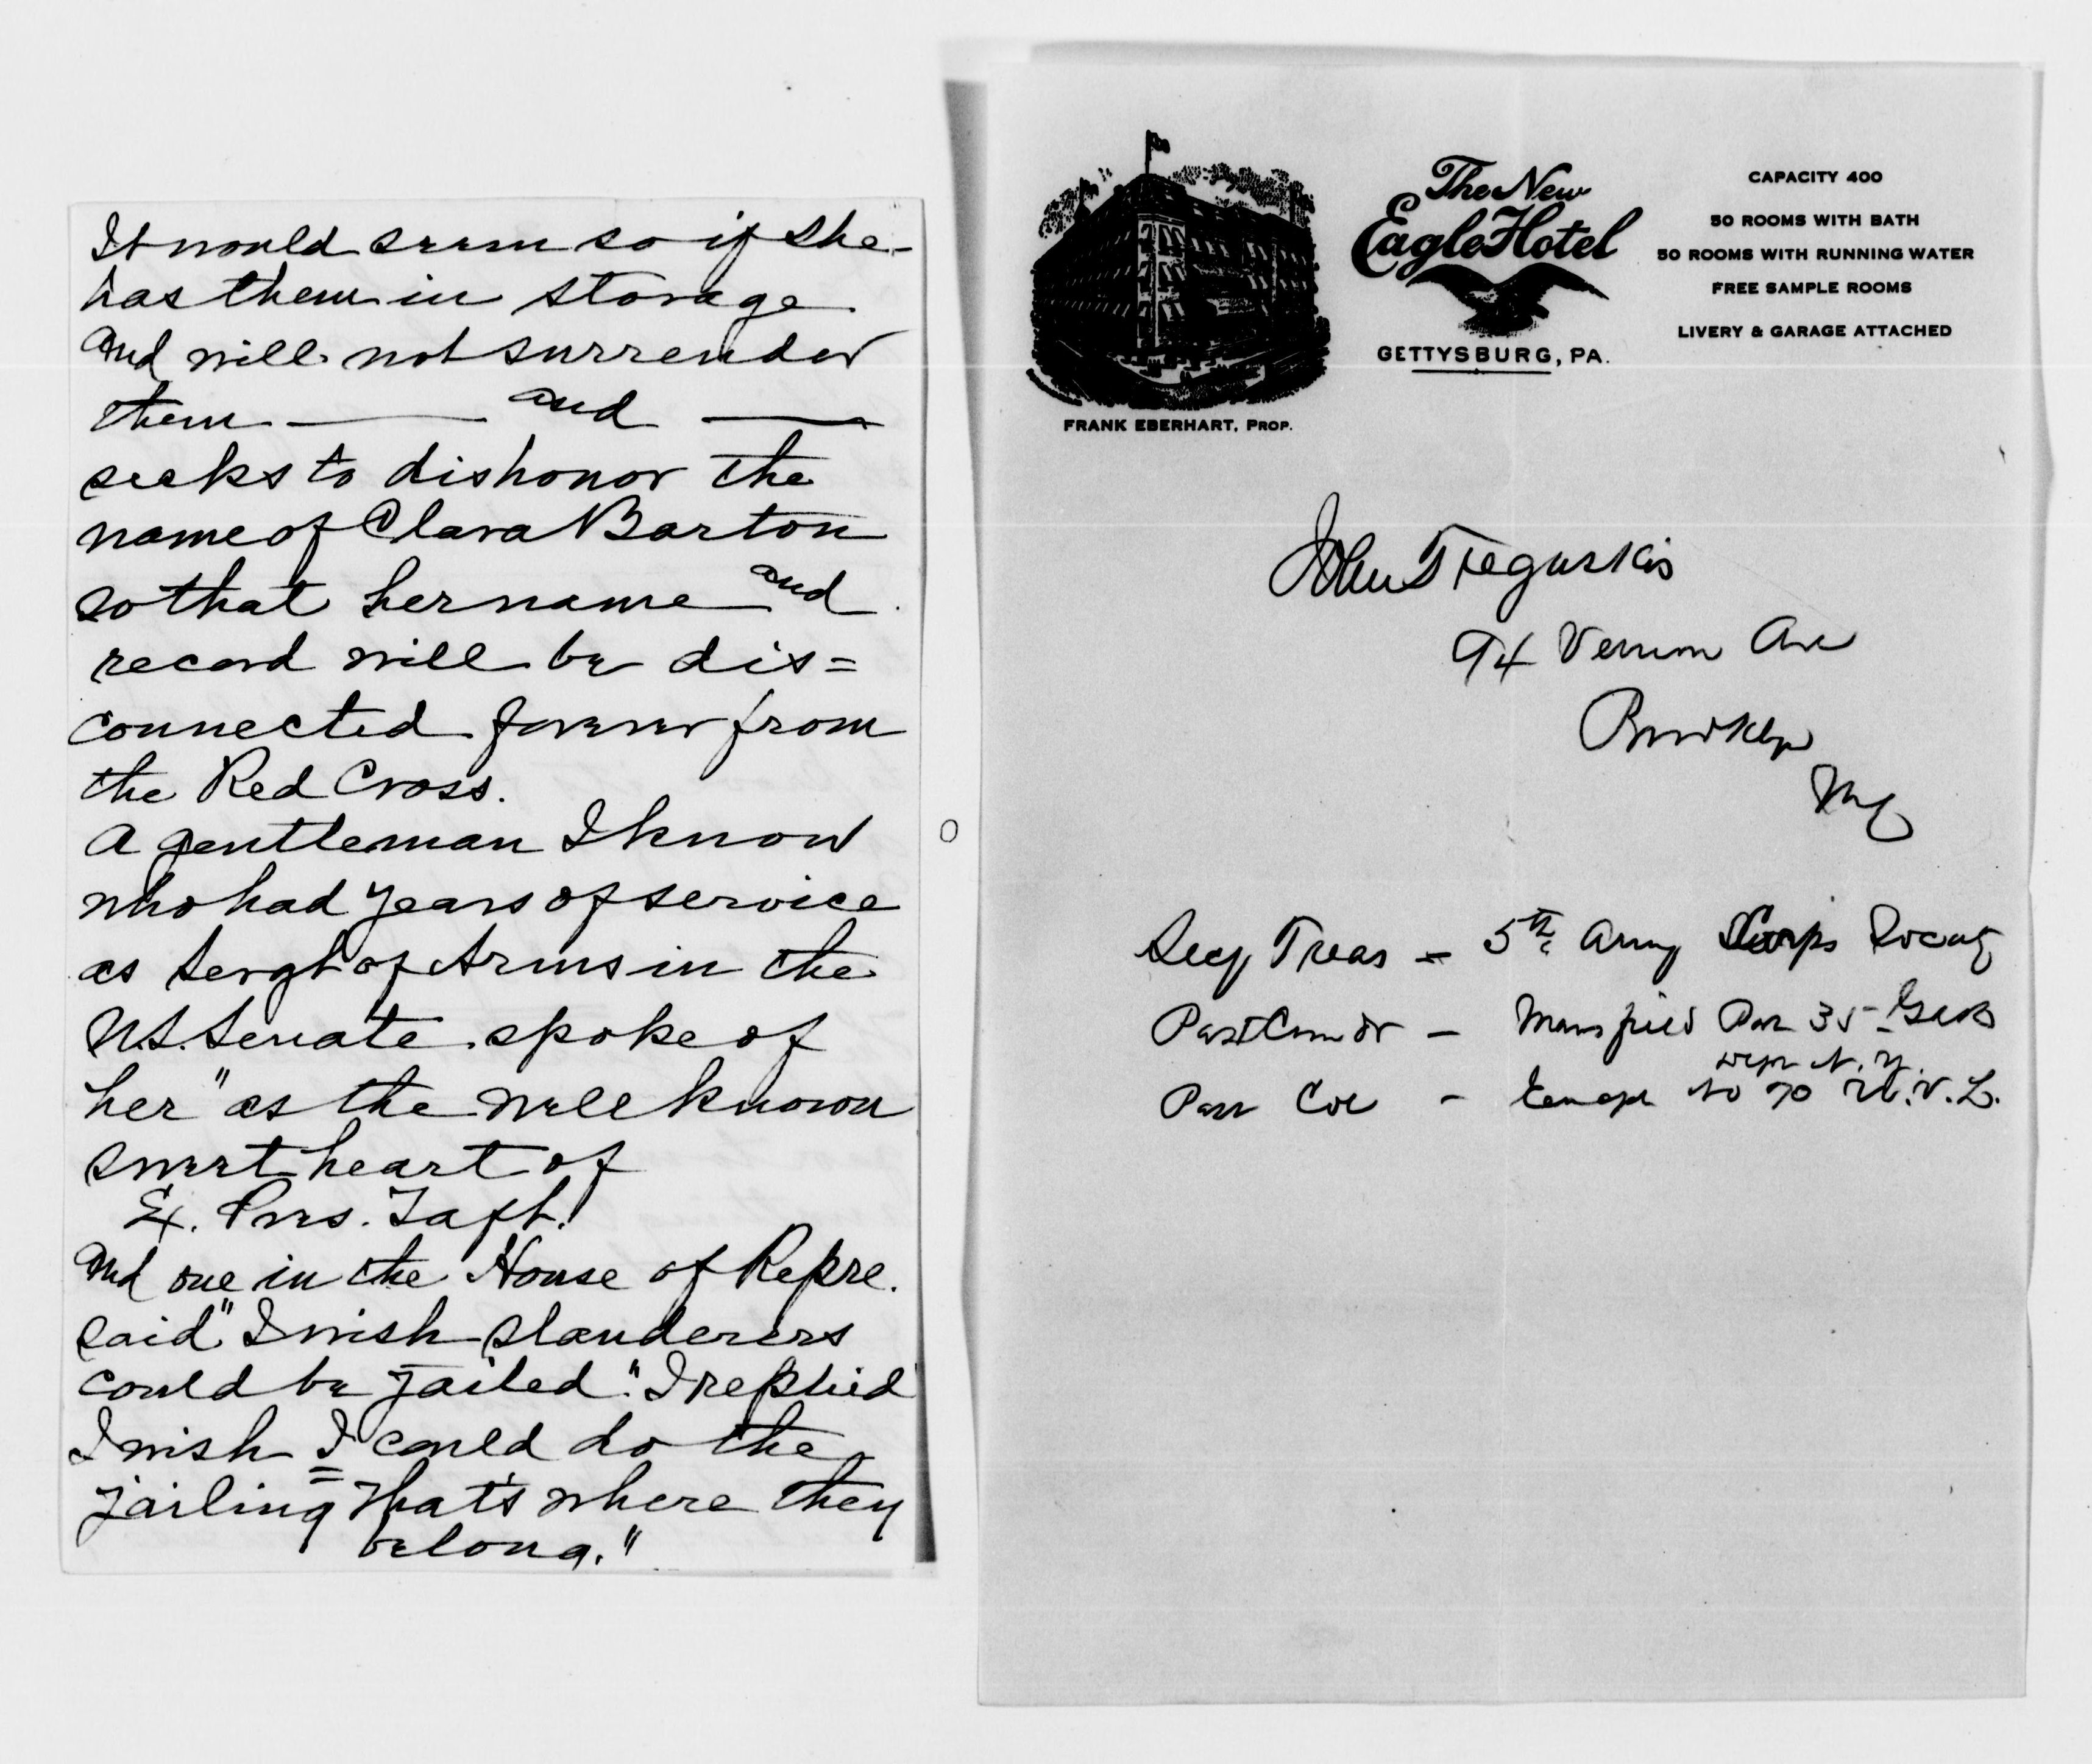 It would seem so if she
has them in storage
and will not surrender
them — and —
seeks to dishonor the
name of Clara Barton
so that her name and
record will be dis=
connected forever from
the Red Cross.
A gentleman I know
who had years of service
as Sergt of Arms in the
U.S. Senate spoke of
her "as the well known
sweetheart of
Ex. Pres. Taft.
And one in the House of Repre.
said "I wish slanderers
could be jailed." I replied
I wish I could do the
jailing that's where they
belong."
The New
Eagle Hotel
GETTYSBURG, PA.
FRANK EBERHART, PROP.
CAPACITY 400
50 ROOMS WITH BATH
50 ROOMS WITH RUNNING WATER
FREE SAMPLE ROOMS
LIVERY & GARAGE ATTACHED
John Tregaskis
94 Vernon Ave
Brooklyn
NY
Secy Treas - 5th Army Corps Society
Past Comdr - Mansfield Post 35 - GAR
Dept N.Y.
Past Col - No 70 U.V.L.